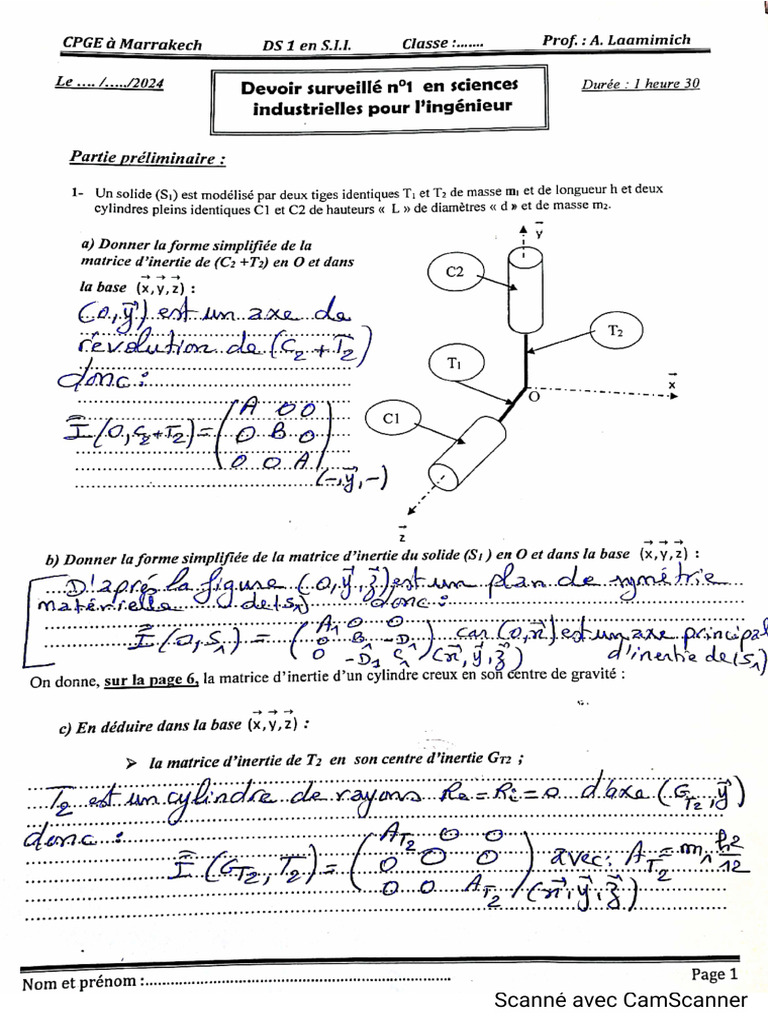 CPGE à Marrakech DS 1 en S.I.I. Classe :....... Prof. : A. Laamimich
Le .... /...../2024
Devoir surveillé n°1 en sciences
industrielles pour l'ingénieur
Durée : 1 heure 30
Partie préliminaire :
1- Un solide (S₁) est modélisé par deux tiges identiques T₁ et T₂ de masse m₁ et de longueur h et deux
cylindres pleins identiques C1 et C2 de hauteurs « L » de diamètres « d » et de masse m₂.
a) Donner la forme simplifiée de la
matrice d'inertie de (C₂ +T₂) en O et dans
la base (x⃗, y⃗, z⃗) :
(O, y⃗) est un axe de
révolution de (C₂ + T₂)
donc :
I̿ (O, C₂+T₂) = ( A 0 0
0 B 0
0 0 A ) (-, y⃗, -)
y⃗
C2
T₂
T₁
x⃗
O
C1
z⃗
b) Donner la forme simplifiée de la matrice d'inertie du solide (S₁ ) en O et dans la base (x⃗, y⃗, z⃗) :
D'après la figure (O, y⃗, z⃗) est un plan de symétrie
matérielle de (S₁) donc :
I̿ (O, S₁) = ( A₁ 0 0
0 B₁ -D₁
0 -D₁ C₁ ) (x⃗, y⃗, z⃗) car (O, x⃗) est un axe principal
d'inertie de (S₁)
On donne, sur la page 6, la matrice d'inertie d'un cylindre creux en son centre de gravité :
c) En déduire dans la base (x⃗, y⃗, z⃗) :
➢ la matrice d'inertie de T₂ en son centre d'inertie G_T2 ;
T₂ est un cylindre de rayons Re = Ri = 0 d'axe (G_T2, y⃗)
donc :
I̿ (G_T2, T₂) = ( A_T2 0 0
0 0 0
0 0 A_T2 ) (x⃗, y⃗, z⃗) avec : A_T2 = m₁ h²/12
Nom et prénom :...............................................................
Page 1
Scanné avec CamScanner